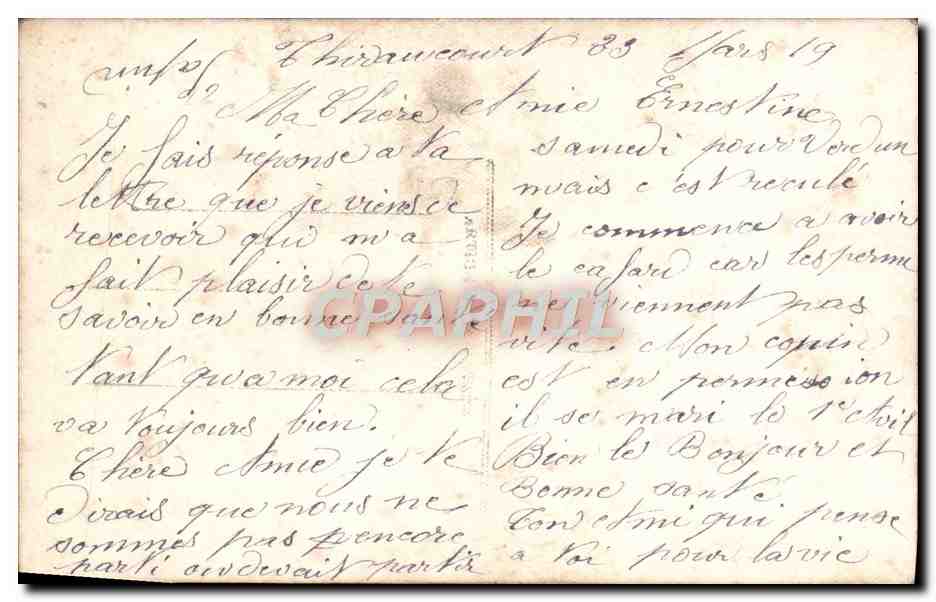 Thiraucourt 23 Mars 19
Ma Chère Amie Ernestine
Je fais réponse a ta
lettre que je viens de
recevoir qui m'a
fait plaisir de te
savoir en bonne santé
tant qu'a moi cela
va toujours bien.
Chère Amie je te
dirais que nous ne
sommes pas encore
parti on devait partir
samedi pour Verdun
mais c'est reculé
Je commence a avoir
le cafard car les perme
ne viennent pas
vite. Mon copin
est en permession
il se mari le 1er Avil
Bien le Bonjour et
Bonne santé
Ton Ami qui pense
a toi pour la vie
CPAPHIL